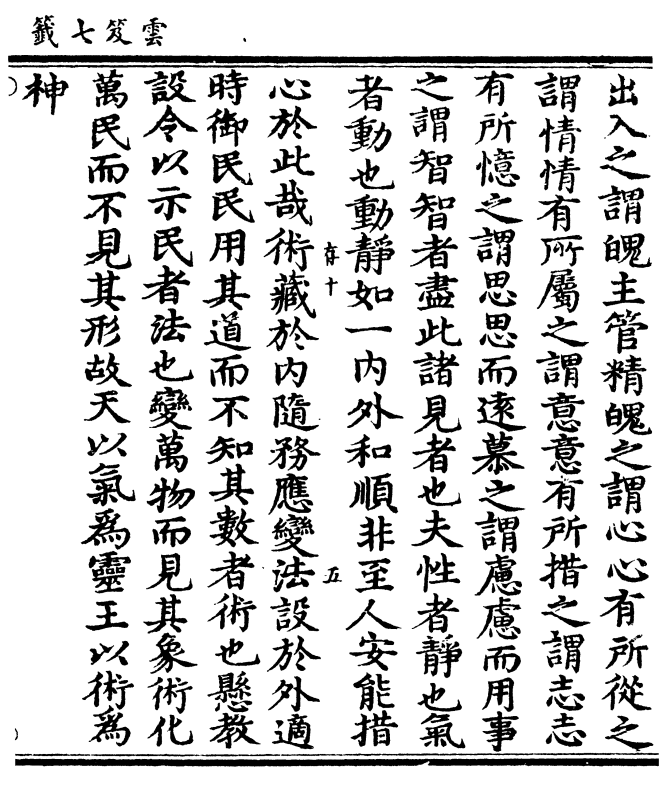 雲笈七籤
出入之謂魄主管精魄之謂心心有所從之
謂情情有所屬之謂意意有所措之謂志志
有所憶之謂思思而遠慕之謂慮慮而用事
之謂智智者盡此諸見者也夫性者靜也氣
者動也動靜如一內外和順非至人安能措
存十
五
心於此哉術藏於內隨務應變法設於外適
時御民民用其道而不知其數者術也懸教
設令以示民者法也變萬物而見其象術化
萬民而不見其形故天以氣爲靈王以術爲
神